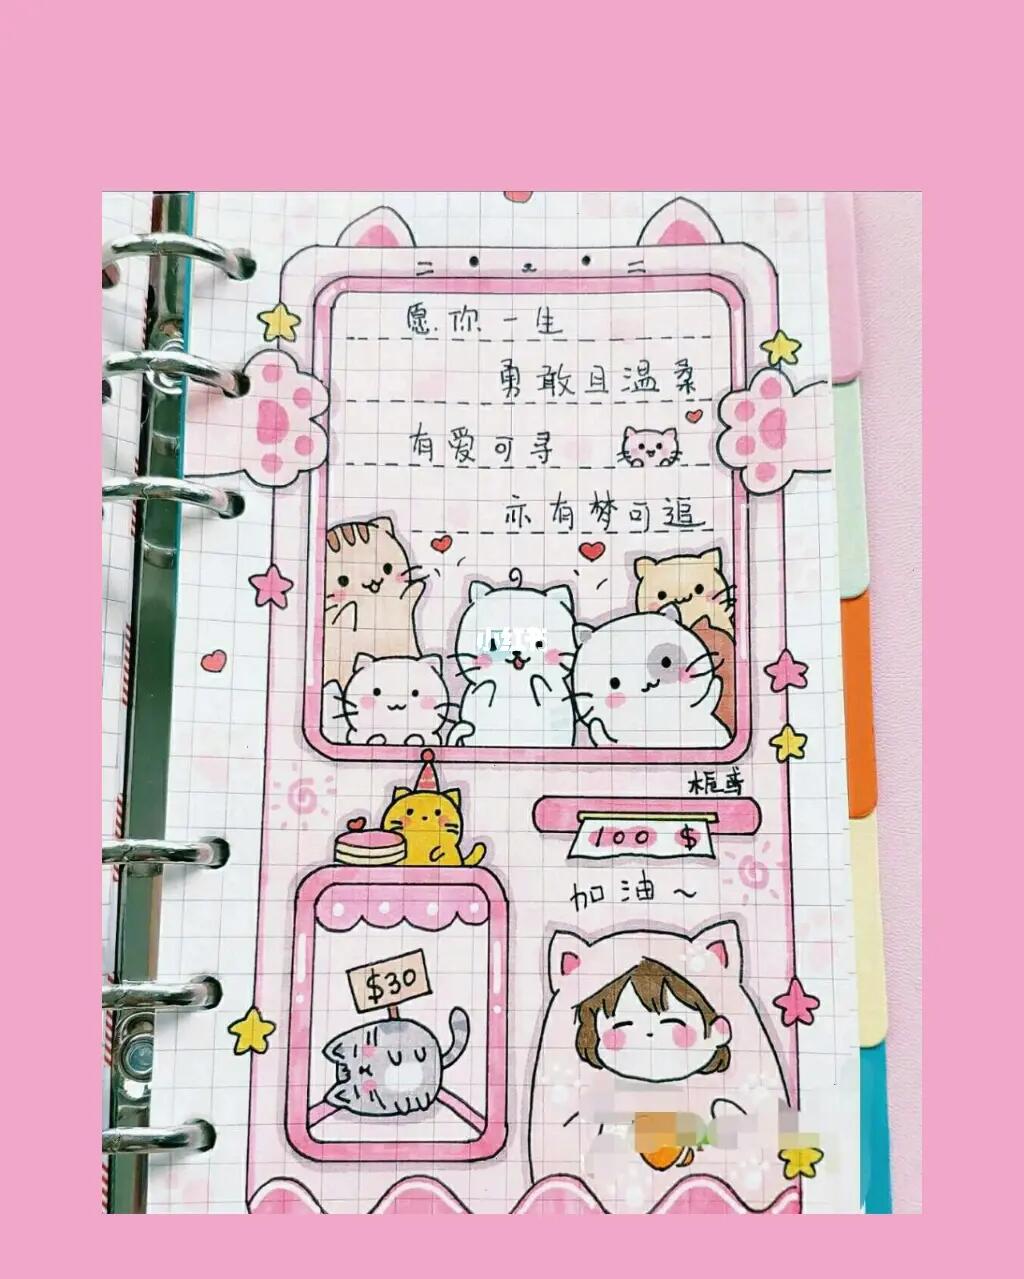 愿你一生
勇敢且温柔
有爱可寻
亦有梦可追
小红书
100 $
加油~
$30